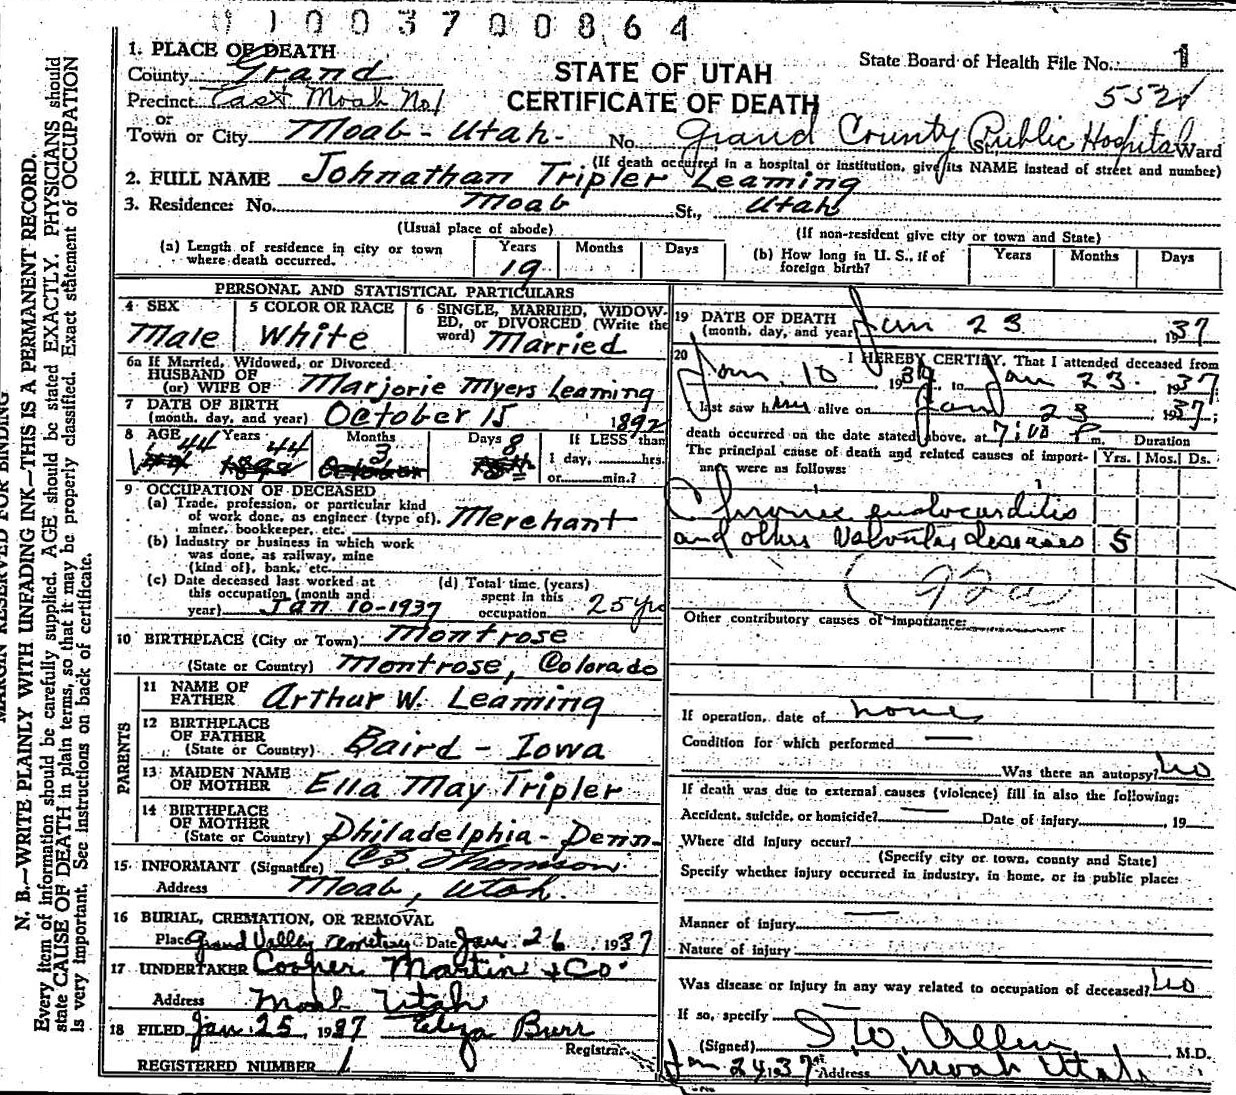 01003700864
STATE OF UTAH
CERTIFICATE OF DEATH
State Board of Health File No. 1
1. PLACE OF DEATH
County Grand
Precinct East Moab No 1
or
Town or City Moab - Utah - No. Grand County Public Hospital St. Ward
(If death occurred in a hospital or institution, give its NAME instead of street and number)
2. FULL NAME Johnathan Tripler Leaming
3. Residence: No. Moab St., Utah
(Usual place of abode) (If non-resident give city or town and State)
(a) Length of residence in city or town where death occurred. Years 19 Months Days
(b) How long in U. S., if of foreign birth? Years Months Days
PERSONAL AND STATISTICAL PARTICULARS
4 SEX Male
5 COLOR OR RACE White
6 SINGLE, MARRIED, WIDOWED, or DIVORCED (Write the word) Married
6a If Married, Widowed, or Divorced
HUSBAND OF
(or) WIFE OF Marjorie Myers Leaming
7 DATE OF BIRTH
(month, day, and year) October 15 1892
8 AGE 44 Years 44 Months 3 Days 8 If LESS than
1 day, hrs.
or min.?
9 OCCUPATION OF DECEASED
(a) Trade, profession, or particular kind
of work done, as engineer (type of),
miner, bookkeeper, etc. Merchant
(b) Industry or business in which work
was done, as railway, mine
(kind of), bank, etc.
(c) Date deceased last worked at
this occupation (month and
year) Jan 10-1937
(d) Total time (years)
spent in this
occupation 25 yrs
10 BIRTHPLACE (City or Town) Montrose
(State or Country) Montrose, Colorado
PARENTS
11 NAME OF
FATHER Arthur W. Leaming
12 BIRTHPLACE
OF FATHER
(State or Country) Baird - Iowa
13 MAIDEN NAME
OF MOTHER Ella May Tripler
14 BIRTHPLACE
OF MOTHER
(State or Country) Philadelphia - Penn
15 INFORMANT (Signature) Thomson
Address Moab, Utah.
16 BURIAL, CREMATION, OR REMOVAL
Place Grand Valley Cemetery Date Jan. 26 1937
17 UNDERTAKER Cooper Martin & Co.
Address Moab Utah
18 FILED Jan. 25, 1937 Eliza Burr
Registrar
REGISTERED NUMBER 1
19 DATE OF DEATH
(month, day, and year) Jan 23 1937
20 I HEREBY CERTIFY, That I attended deceased from
Jan. 10 1937, to Jan 23. 1937
I last saw him alive on Jan 23 1937;
death occurred on the date stated above, at 7:00 P m. Duration
The principal cause of death and related causes of importance were as follows: Yrs. Mos. Ds.
Chronic endocarditis
and others Valvular diseases 5
92a
Other contributory causes of importance:
If operation, date of none
Condition for which performed
Was there an autopsy? No
If death was due to external causes (violence) fill in also the following:
Accident, suicide, or homicide? Date of injury 19
Where did injury occur?
(Specify city or town, county and State)
Specify whether injury occurred in industry, in home, or in public place:
Manner of injury
Nature of injury
Was disease or injury in any way related to occupation of deceased? No
If so, specify
(Signed) I. W. Allen, M.D.
Jan 24 1937 Address Moab Utah
MARGIN RESERVED FOR BINDING
N. B.—WRITE PLAINLY WITH UNFADING INK—THIS IS A PERMANENT RECORD.
Every item of information should be carefully supplied. AGE should be stated EXACTLY. PHYSICIANS should
state CAUSE OF DEATH in plain terms, so that it may be properly classified. Exact statement of OCCUPATION
is very important. See instructions on back of certificate.